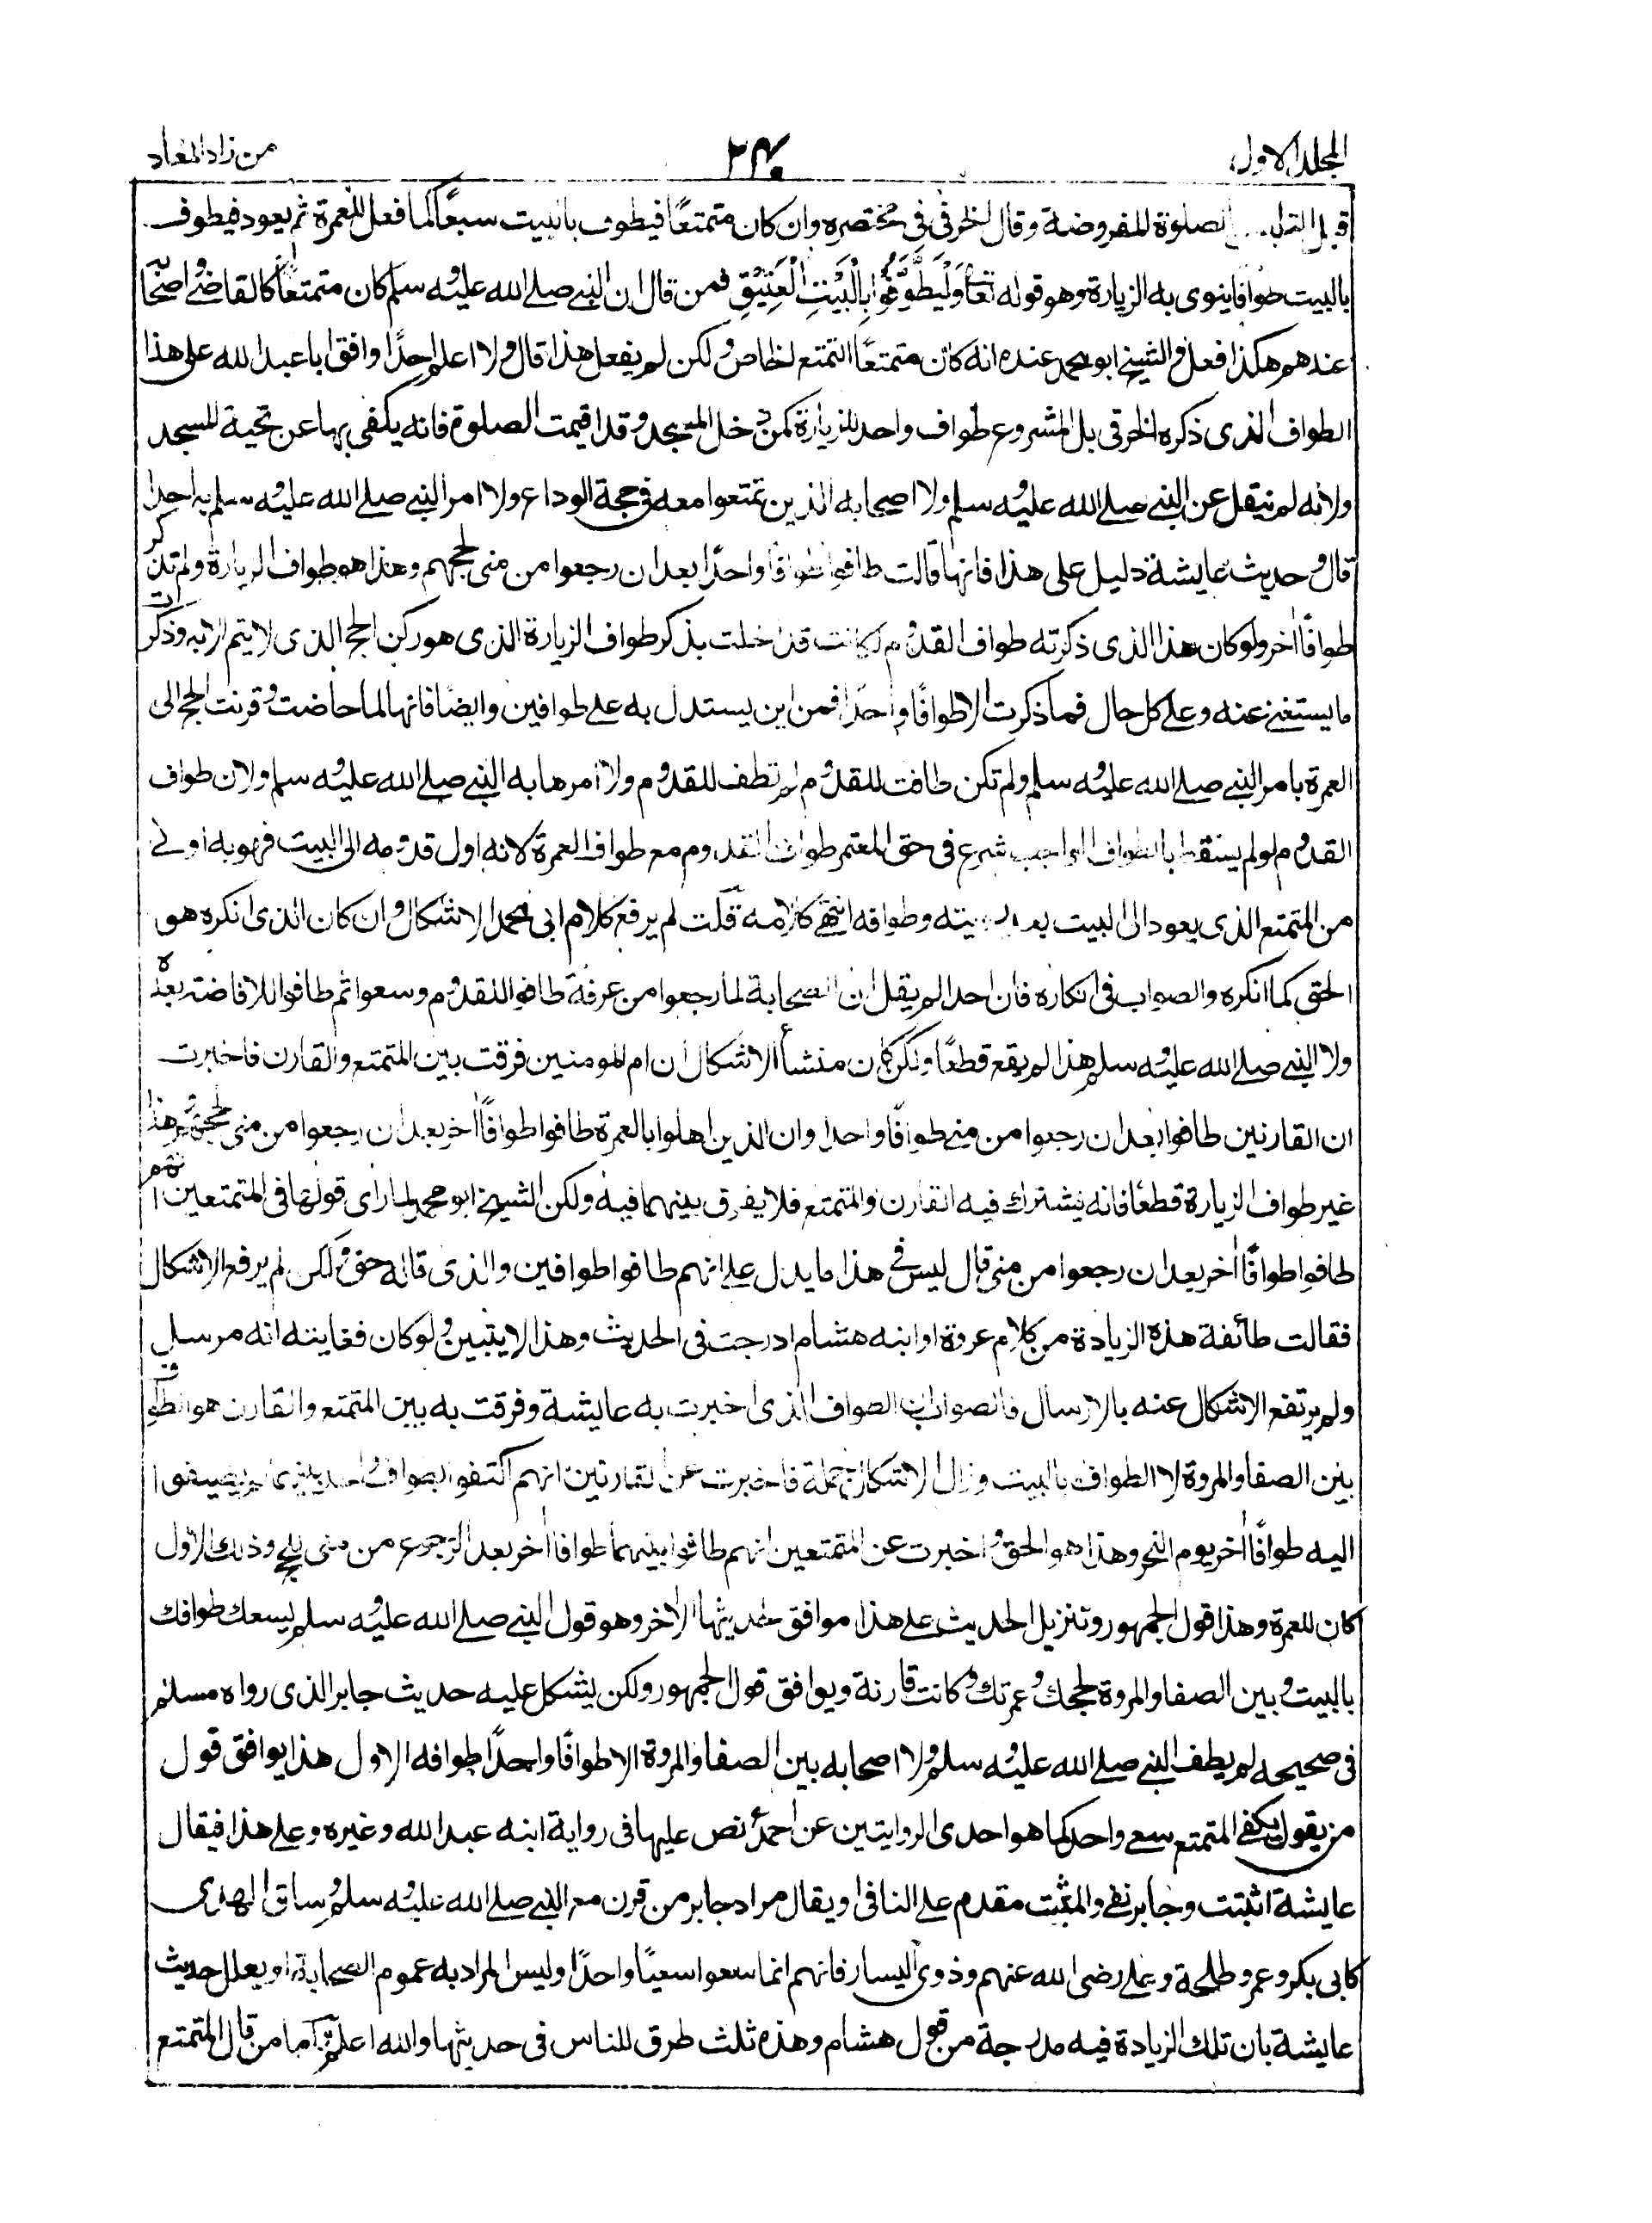 المجلد الاول
٢٤٠
من زاد المعاد
قبل الصلوة المفروضة وقال الخرقى فى مختصره وان كان متمتعًا فيطوف بالبيت سبعًا كما فعل للعمرة ثم يعود فيطوف
بالبيت طوافا ينوى به الزيارة وهو قوله تعا وَلْيَطَّوَّفُوْا بِالْبَيْتِ الْعَتِيْقِ فمن قال ان النبے صلے الله عليه وسلم كان متمتعًا كالقاضى واصحابه
عندهم هكذا فعل والشيخ ابو محمد عنده انه كان متمتعًا التمتع الخاص ولكن لم يفعل هذا قال ولا اعلم احدًا وافق ابا عبد الله على هذا
الطواف الذى ذكره الخرقى بل المشروع طواف واحد للزيارة كمن دخل المسجد وقد اقيمت الصلوة فانه يكفى بها عن تحية المسجد
ولانه لم ينقل عن النبے صلے الله عليه وسلم ولا اصحابه الذين تمتعوا معه فى حجة الوداع ولا امر النبے صلے الله عليه وسلم به احدا
قال وحديث عايشة دليل على هذا فانها قالت طافوا طوافًا واحدًا بعد ان رجعوا من منى لحجهم وهذا هو طواف الزيارة ولم تذكر
طوافًا اٰخر ولو كان هذا الذى ذكرته طواف القدوم لكانت قد اخلت بذكر طواف الزيارة الذى هو ركن الحج الذى لا يتم الا به وذكرت
ما يستغنے عنه وعلے كل حال فما ذكرت الا طوافًا واحدًا فمن اين يستدل به علے طوافين وايضًا فانها لما حاضت وقرنت الحج الى
العمرة بامر النبے صلے الله عليه وسلم ولم تكن طافت للقدوم لم تطف للقدوم ولا امرها به النبے صلے الله عليه وسلم ولان طواف
القدوم لو لم يسقط بالطواف الواجب شرع فى حق المعتمر طواف القدوم مع طواف العمرة لانه اول قدومه الى البيت فهو به اولے
من المتمتع الذى يعود الى البيت بعد رؤيته وطوافه انتهے كلامه قلت لم يرفع كلام ابى محمد الاشكال وان كان الذى انكره هو
الحق كما انكره والصواب فى انكاره فان احدا لم يقل ان الصحابة لما رجعوا من عرفة طافوا للقدوم وسعوا ثم طافوا للافاضة بعده
ولا النبے صلے الله عليه وسلم هذا لم يقع قطعًا ولكن كان منشأ الاشكال ان ام المومنين فرقت بين المتمتع والقارن فاخبرت
ان القارنين طافوا بعد ان رجعوا من منے طوافًا واحدا وان الذين اهلوا بالعمرة طافوا طوافًا اٰخر بعد ان رجعوا من منى لحجهم وهذا
غير طواف الزيارة قطعًا فانه يشترك فيه القارن والمتمتع فلا يفرق بينهما فيه ولكن الشيخ ابو محمد لما راى قولها فى المتمتعين انهم
طافوا طوافًا اٰخر بعد ان رجعوا من منى قال ليس فى هذا ما يدل علے انهم طافوا طوافين والذى قاله حق ولكن لم يرفع الاشكال
فقالت طائفة هذه الزيادة من كلام عروة او ابنه هشام ادرجت فى الحديث وهذا لا يتبين ولو كان فغايته انه مرسل
ولم يرتفع الاشكال عنه بالارسال فالصواب ان الطواف الذى اخبرت به عايشة وفرقت به بين المتمتع والقارن هو الطواف
بين الصفا والمروة لا الطواف بالبيت وزال الاشكال جملة فاخبرت عن القارنين انهم اكتفوا بطواف واحد بينهما لم يضيفوا
اليه طوافًا اٰخر يوم النحر وهذا هو الحق واخبرت عن المتمتعين انهم طافوا بينهما طوافًا اٰخر بعد الرجوع من منى للحج وذلك الاول
كان للعمرة وهذا قول الجمهور وتنزيل الحديث علے هذا موافق لحديثها الاخر وهو قول النبے صلے الله عليه وسلم يسعك طوافك
بالبيت وبين الصفا والمروة لحجك وعمرتك وكانت قارنة ويوافق قول الجمهور ولكن يشكل عليه حديث جابر الذى رواه مسلم
فى صحيحه لم يطف النبے صلے الله عليه وسلم ولا اصحابه بين الصفا والمروة الا طوافًا واحدًا طوافه الاول هذا يوافق قول
من يقول يكفے المتمتع سعے واحد كما هو احدى الروايتين عن احمد نص عليها فى رواية ابنه عبد الله وغيره وعلے هذا فيقال
عايشة اثبتت وجابر نفے والمثبت مقدم علے النافى او يقال مراد جابر من قرن مع النبے صلے الله عليه وسلم وساق الهدى
كابى بكر وعمر وطلحة وعلے رضى الله عنهم وذوى اليسار فانهم انما سعوا سعيًا واحدًا وليس المراد به عموم الصحابة او يعلل حديث
عايشة بان تلك الزيادة فيه مدرجة من قول هشام وهذه ثلث طرق للناس فى حديثها والله اعلم واما من قال المتمتع